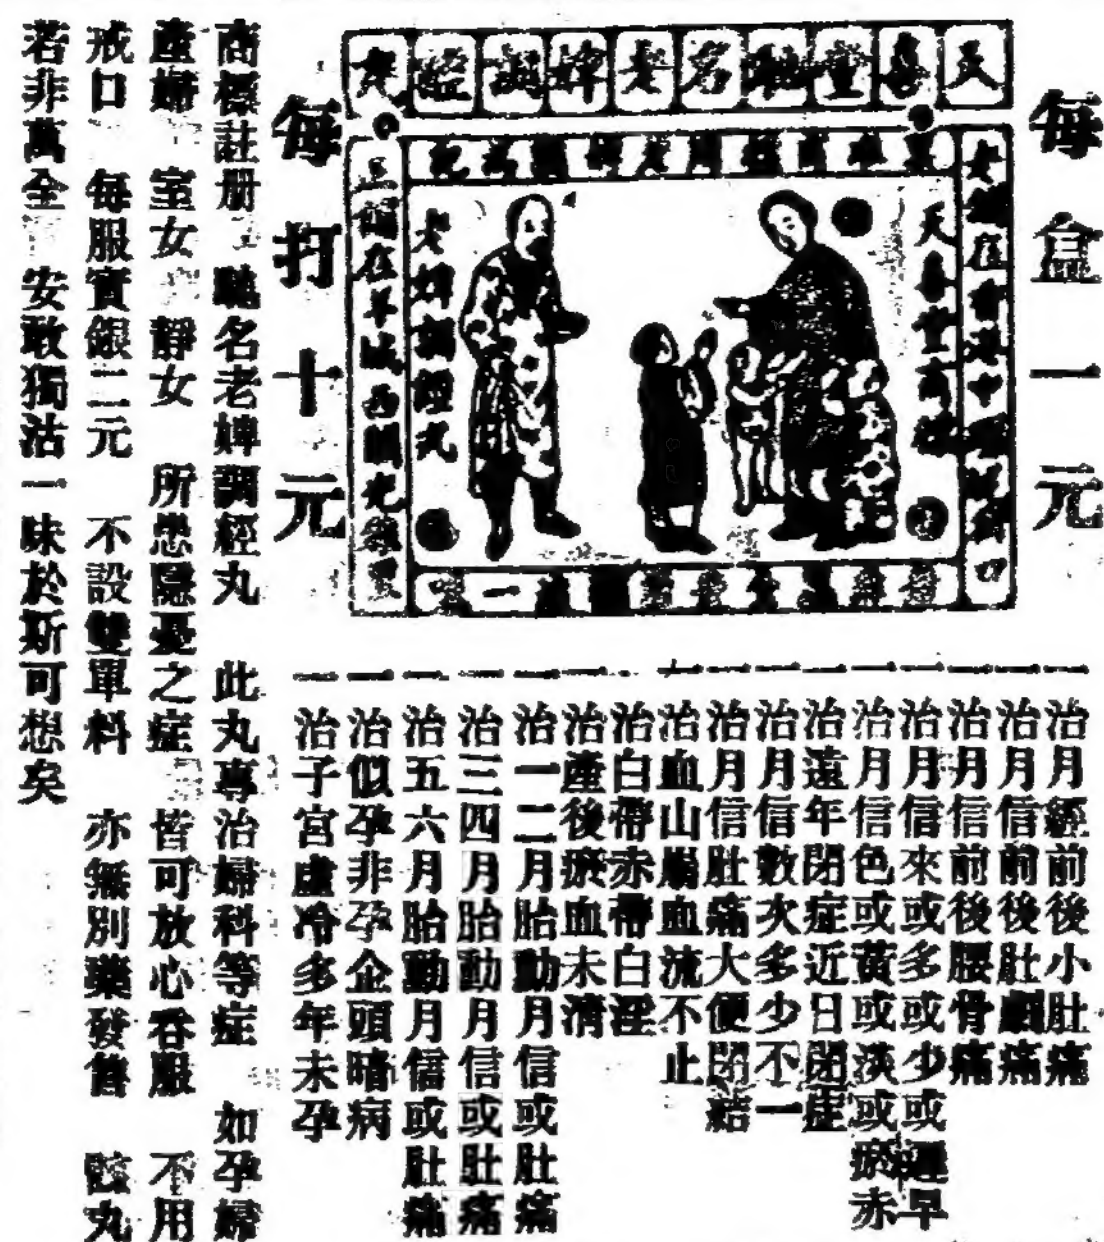 每盒一元
天喜堂馳名老婢調經丸
天喜堂商標
老婢調經丸
每打十元
一治月經前後小肚痛
一治月信前後肚劇痛
一治月信前後腰骨痛
一治月信來或多或少或遲早
一治月信色或黃或淡或瘀赤
一治遠年閉症近日閉症
一治月信數次多少不一
一治月信肚痛大便閉結
一治血山崩血流不止
一治白帶赤帶白淫
一治產後瘀血未清
一治一二月胎動月信或肚痛
一治三四月胎動月信或肚痛
一治五六月胎動月信或肚痛
一治似孕非孕企頭暗病
一治子宮虛冷多年未孕
商標註册 馳名老婢調經丸 此丸專治婦科等症 如孕婦
產婦 室女 靜女 所患隱憂之症 皆可放心吞服 不用
戒口 每服實銀二元 不設雙單料 亦無別藥發售 該丸
若非萬全 安敢獨沽一味於斯可想矣